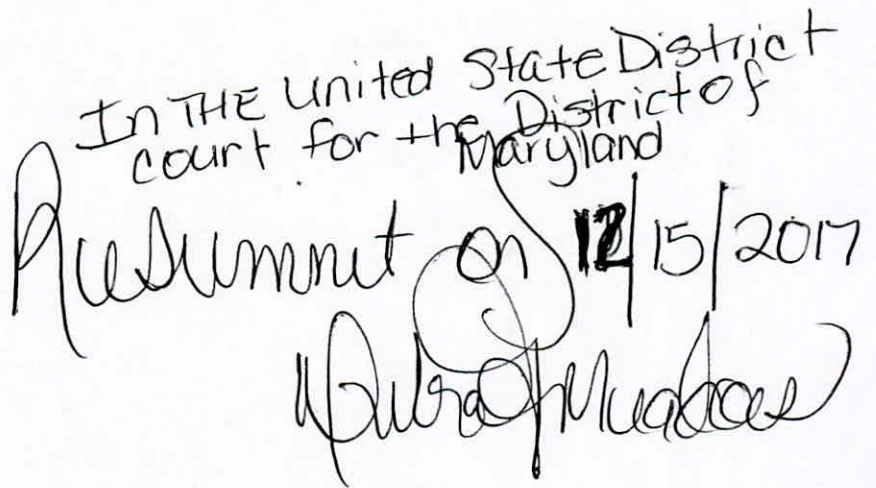 In THE United State District
court for the District of
Maryland
Resummit on 12/15/2017
Debra J Meadows